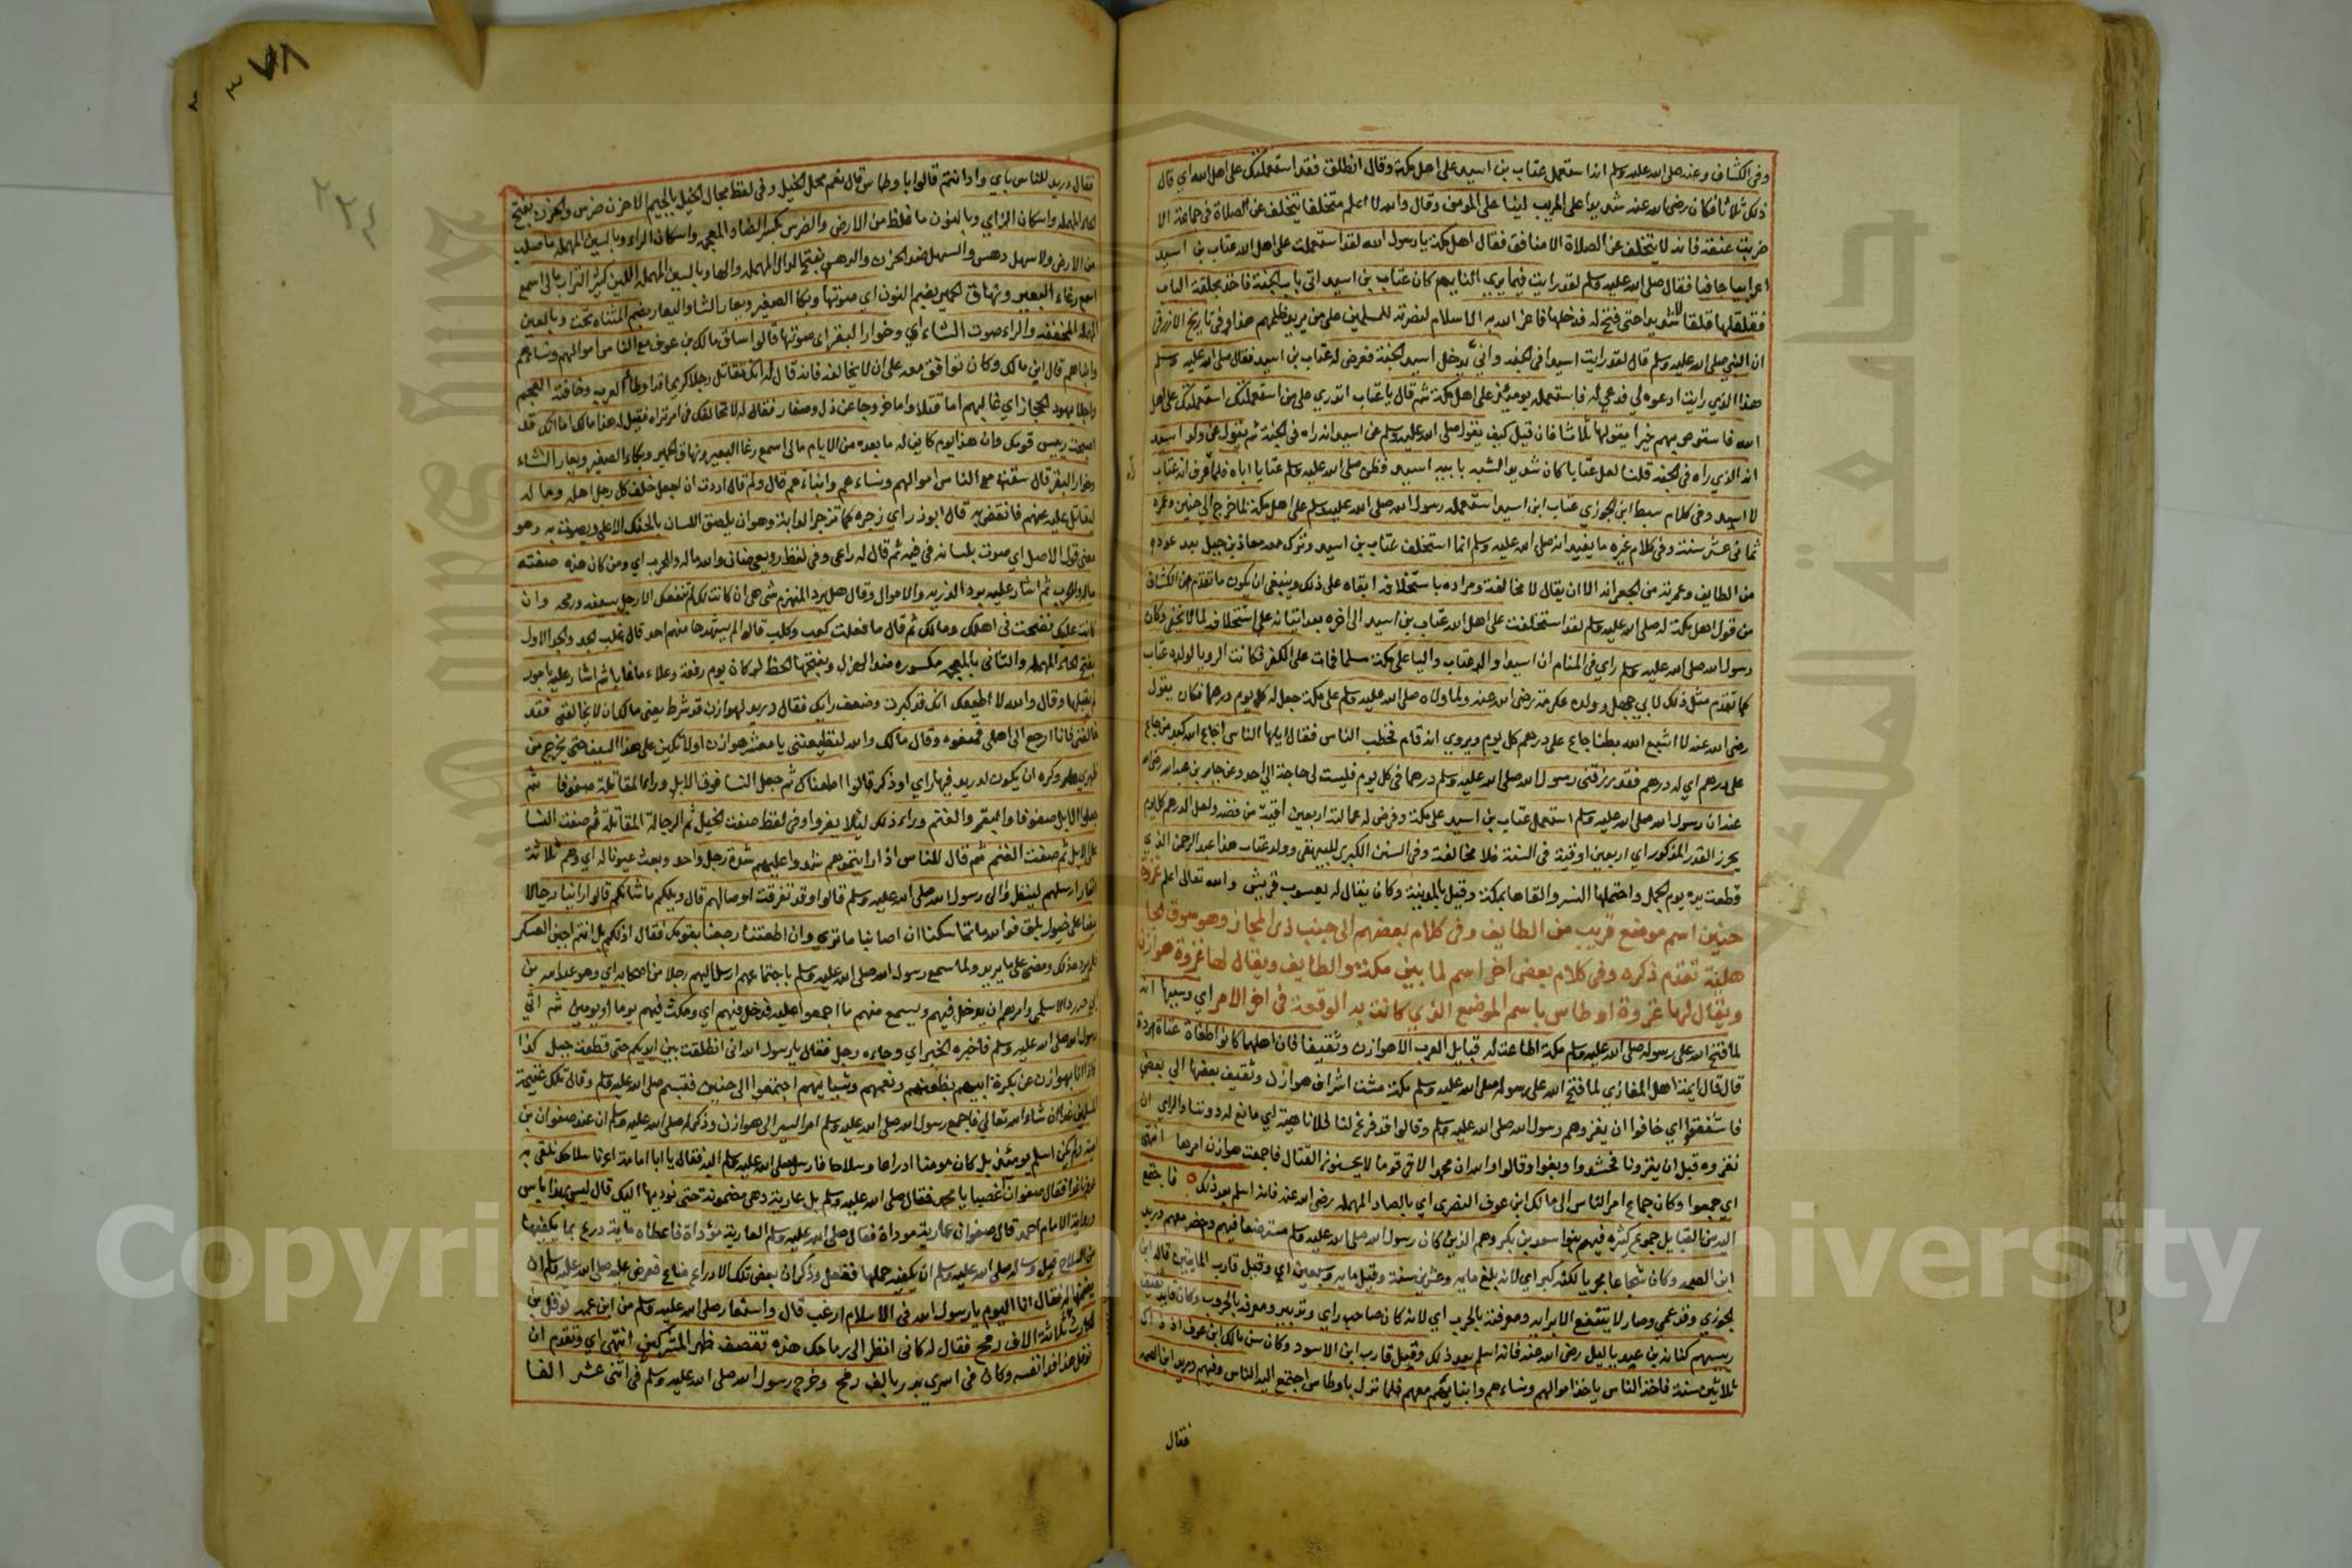 وفي الكشاف وعنه صلى الله عليه وسلم انه استعمل عتاب بن اسيد على اهل مكة وقال انطلق فقد استعملتك على اهل الله اي قال
ذلك ثلاثا فكان رضي الله عنه شديدا على المريب لينا على المومن وقال والله لا اعلم متخلفا يتخلف عن الصلاة في جماعة الا
ضربت عنقه فانه لا يتخلف عن الصلاة الا منافق فقال اهل مكة يا رسول الله لقد استعملت على اهل الله عتاب بن اسيد
اعرابيا جافيا فقال صلى الله عليه وسلم لقد رايت فيما يري النايم كان عتاب بن اسيد اتى باب الجنة فاخذ بحلقة الباب
فقلقلها قلقا لا شديدا حتى فتح له فدخلها فاعز الله به الاسلام لنصرته للمسلمين على من يريد ظلمهم هذا وفي تاريخ الازرقي
ان النبي صلى الله عليه وسلم قال لقد رايت اسيدا في الجنة واني يدخل اسيد الجنة فعرض له عتاب بن اسيد فقال صلى الله عليه وسلم
هذا الذي رايت ادعوه لي فدعي له فاستعمله يومئذ على اهل مكة ثم قال يا عتاب اتدري على من استعملتك استعملتك على اهل
الله فاستوص بهم خيرا يقولها ثلاثا فان قيل كيف يقول صلى الله عليه وسلم عن اسيد انه راه في الجنة ثم يقول عن ولد اسيد
انه الذي راه في الجنة قلنا لعل عتابا كان شديد الشبه بابيه اسيد فظن صلى الله عليه وسلم عتابا اباه فلما عرف انه عتاب
لا اسيد وفي كلام سبط ابن الجوزي عتاب ابن اسيد استعمله رسول الله صلى الله عليه وسلم على اهل مكة لما خرج الي حنين وعمره
ثماني عشر سنة وفي كلام غيره ما يفيد انه صلى الله عليه وسلم انما استخلف عتاب بن اسيد وترك معه معاذ بن جبل بعد عوده
من الطايف وعمرته من الجعرانه الا ان يقال لا مخالفة ومراده باستخلافه ابقاه على ذلك وينبغي ان يكون ما تقدم عن الكشاف
من قول اهل مكة له صلى الله عليه وسلم لقد استخلفت على اهل الله عتاب بن اسيد الى اخره بعد اتيانه على استخلافه لما لا يخفى وكان
رسول الله صلى الله عليه وسلم راي في المنام ان اسيدا والد عتاب واليا على مكة مسلما فمات على الكفر فكانت الرويا لولده عتاب
كما تقدم مثل ذلك لابي جهل وولده عكرمة رضي الله عنه ولما ولاه صلى الله عليه وسلم على مكة جعل له كل يوم درهما فكان يقول
رضي الله عنه لا اشبع الله بطنا جاع على درهم كل يوم ويروي انه قام فخطب الناس فقال ايها الناس اجاع الله كبد من جاع
على درهم اي له درهم فقد رزقني رسول الله صلى الله عليه وسلم درهما في كل يوم فليست لي حاجة الي احد وعن جابر بن عبد الله رضي الله
عنه ان رسول الله صلى الله عليه وسلم استعمل عتاب بن اسيد على مكة وفرض له عمالته اربعين اوقية من فضه ولعل الدرهم كل يوم
يحرز القدر المذكور اي اربعين اوقية في السنة فلا مخالفة وفي السنن الكبرى للبيهقي وولد عتاب هذا عبد الرحمن الذي
قطعت يده يوم الجمل واحتملها النسر والقاها بمكة وقيل بالمدينة وكان يقال له يعسوب قريش والله تعالى اعلم غزوة
حنين اسم موضع قريب من الطايف وفي كلام بعضهم الى جنب ذي المجاز وهو سوق للجا
هلية تقدم ذكره وفي كلام بعض اخر اسم لما بين مكة والطايف ويقال لها غزوة هوازن
ويقال لها غزوة اوطاس باسم الموضع الذي كانت به الوقعة في اخر الامر اي وسببها انه
لما فتح الله على رسوله صلى الله عليه وسلم مكة اطاعت له قبايل العرب الا هوازن وثقيفا فان اهلهما كانوا طغاة عتاة مردة
قال قال ايمة اهل المغازي لما فتح الله على رسوله صلى الله عليه وسلم مكة مشت اشراف هوازن وثقيف بعضها الي بعض
فاشفقوا اي خافوا ان يغزوهم رسول الله صلى الله عليه وسلم وقالوا قد فرغ لنا فلا ناهية اي مانع له دوننا والراي ان
نغزوه قبل ان يغزونا فحشدوا وبغوا وقالوا والله ان محمدا لاقى قوما لا يحسنون القتال فاجمعت هوازن امرها انتهى
اي جمعوا وكان جماع امر الناس الى مالك ابن عوف النصري اي بالصاد المهمله رضي الله عنه فانه اسلم بعد ذلك فاجتمع
اليه من القبايل جموع كثيره فيهم بنوا سعد بن بكر وهم الذين كان رسول الله صلى الله عليه وسلم مسترضعا فيهم وحضر معهم دريد
ابن الصمه وكان شجاعا مجربا لكنه كبر اي لانه بلغ مايه وعشرين سنة وقيل مايه وسبعين اي وقيل قارب المايتين قاله ابن
الجوزي وقد عمي وصار لا ينتفع الا برايه ومعرفته بالحرب اي لانه كان صاحب راي وتدبير ومعرفه بالحروب وكان قايد ثقيف
رييسهم كنانة بن عبد ياليل رضي الله عنه فانه اسلم بعد ذلك وقيل قارب ابن الاسود وكان سن مالك ابن عوف اذ ذاك
ثلاثين سنة فاخذ الناس ياخذ اموالهم ونساءهم وابنايهم معهم فلما نزل باوطاس اجتمع اليه الناس وفيهم دريد ابن الصمه
فقال
٧٨
٢٢٤
فقال دريد للناس باي واد انتم قالوا باوطاس قال نعم محل الخيل وفي لفظ مجال الخيل بالجيم لا حزن ضرس والحزن بفتح
الحاء المهمله واسكان الزاي وبالنون ما غلظ من الارض والضرس بكسر الضاد المعجمه واسكان الراء وبالسين المهمله ما صلب
من الارض ولا سهل دهس والسهل ضد الحزن والدهس بفتح الدال المهمله والها وبالسين المهمله اللين كثير التراب مالي اسمع
اسمع رغاء البعير ونهاق الحمير بضم النون اي صوتها وبكا الصغير ويعار الشا واليعار بضم المثناه تحت وبالعين
المهمله المخففه والراء صوت الشاء اي وخوار البقر اي صوتها قالوا ساق مالك بن عوف مع الناس اموالهم ونساءهم
وابناهم قال اين مالك وكان توافق معه على ان لا يخالفه فانه قال له انك تقاتل رجلا كريما قد اوطأ العرب وخافته العجم
واجلا يهود الحجاز اي غالبهم اما قتلا واما خروجا عن ذل وصغار فقال له لا نخالفك في امر تراه فقيل له هذا مالك اما انك قد
اصبحت رييس قومك وان هذا يوم كاين له ما بعده من الايام مالى اسمع رغا البعير ونهاق الحمير وبكاء الصغير ويعار الشاء
وخوار البقر قال سقت مع الناس اموالهم ونساءهم وابناءهم قال ولم قال اردت ان اجعل خلف كل رجل اهله وماله
ليقاتل عليه عنهم فانقض به قال ابوذر اي زجره كما تزجر الدابة وهو ان يلصق اللسان بالحنك الاعلى ويصوت به وهو
معنى قول الاصل اي صوت بلسانه في فيه ثم قال له راعي وفي لفظ رويعي ضان والله ماله والحرب اي ومن كان هذه صفته
ماله وللحرب ثم اشار عليه برد الذريه والاموال وقال هل يرد المنهزم شي هي ان كانت لك لم تنفعك الا رجل بسيفه ورمحه وان
كانت عليك فضحت في اهلك ومالك ثم قال ما فعلت كعب وكلاب قالوا لم يشهدها منهم احد قال غاب الحد والجد الاول
بفتح الحاء المهمله والثاني بالمعجمه مكسوره ضد الهزل وبفتحها الحظ لو كان يوم رفعة وعلاء ما غابا ثم اشار عليه بامور
لم يقبلها وقال والله لا اطيعك انك قد كبرت وضعف رايك فقال دريد لهوازن قد شرط يعني مالك ان لا يخالفني فقد
خالفني فانا ارجع الى اهلي فمنعوه وقال مالك والله لتطيعنني يا معشر هوازن او لاتكين على هذا السيف حتى يخرج من
ظهري وكره ان يكون لدريد فيها راي او ذكر قالوا اطعناك ثم جعل النسا فوق الابل وراء المقاتلة صفوفا ثم
جعلوا الابل صفوفا والبقر والغنم وراء ذلك ليلا يفروا وفي لفظ صفت الخيل ثم الرجالة المقاتلة ثم صفت النسا
على الابل ثم صفت الغنم ثم قال للناس اذا رايتموهم شدوا عليهم شدة رجل واحد وبعث عيونا له اي وهم ثلاثة
انفار ارسلهم لينظروا الى رسول الله صلى الله عليه وسلم فاتوا وقد تفرقت اوصالهم قال ويلكم ما شانكم قالوا راينا رجالا
بيضا على خيول بلق فوالله ما تماسكنا ان اصابنا ما ترى وان اطعتنا رجعنا بقومك فقال اف لكم بل انتم اجبن العسكر
فلم يرده ذلك ومضى على ما يريد ولما سمع رسول الله صلى الله عليه وسلم باجتماعهم ارسل اليهم رجلا من اصحابه اي وهو عبد الله بن
ابي حدرد الاسلمي وامره ان يدخل فيهم ويسمع منهم ما اجمعوا عليه فدخل فيهم اي ومكث فيهم يوما او يومين ثم اتى
رسول الله صلى الله عليه وسلم فاخبره الخبر اي وجاءه رجل فقال يا رسول الله اني انطلقت بين ايديكم حتى قطعت جبل كذا
فاذا انا بهوازن عن بكرة ابيهم بظعنهم ونعمهم وشياههم اجتمعوا الى حنين فتبسم صلى الله عليه وسلم وقال تلك غنيمة
المسلمين غدا ان شاء الله تعالى فاجمع رسول الله صلى الله عليه وسلم امر السير الى هوازن وذكر له صلى الله عليه وسلم ان عند صفوان بن
امية ولم يكن اسلم يومئذ بل كان مومنا ادراعا وسلاحا فارسل صلى الله عليه وسلم اليه فقال يا ابا امامة اعرنا سلاحك نلقى به
عدونا غدا فقال صفوان اغصبا يا محمد فقال صلى الله عليه وسلم بل عارية وهي مضمونة حتى نوديها اليك قال ليس بهذا باس
ورواية الامام احمد قال صفوان عارية موداة فقال صلى الله عليه وسلم العارية مؤداة فاعطاه ماية درع بما يكفيها
من السلاح قيل وساله صلى الله عليه وسلم ان يكفيه حملها ففعل وذكر ان بعض تلك الادراع ضاع فعرض عليه صلى الله عليه وسلم ان
يضمنها له فقال انا اليوم يا رسول الله في الاسلام ارغب قال واستعار صلى الله عليه وسلم من ابن عمه نوفل بن
الحارث ثلاثة الاف رمح فقال له كاني انظر الى رماحك هذه تقصف ظهر المشركين انتهى اي وتقدم ان
نوفل هذا فدا نفسه وكان في اسري بدر بالف رمح وخرج رسول الله صلى الله عليه وسلم في اثنى عشر الفا
Copyright © King Saud University
جامعة الملك سعود